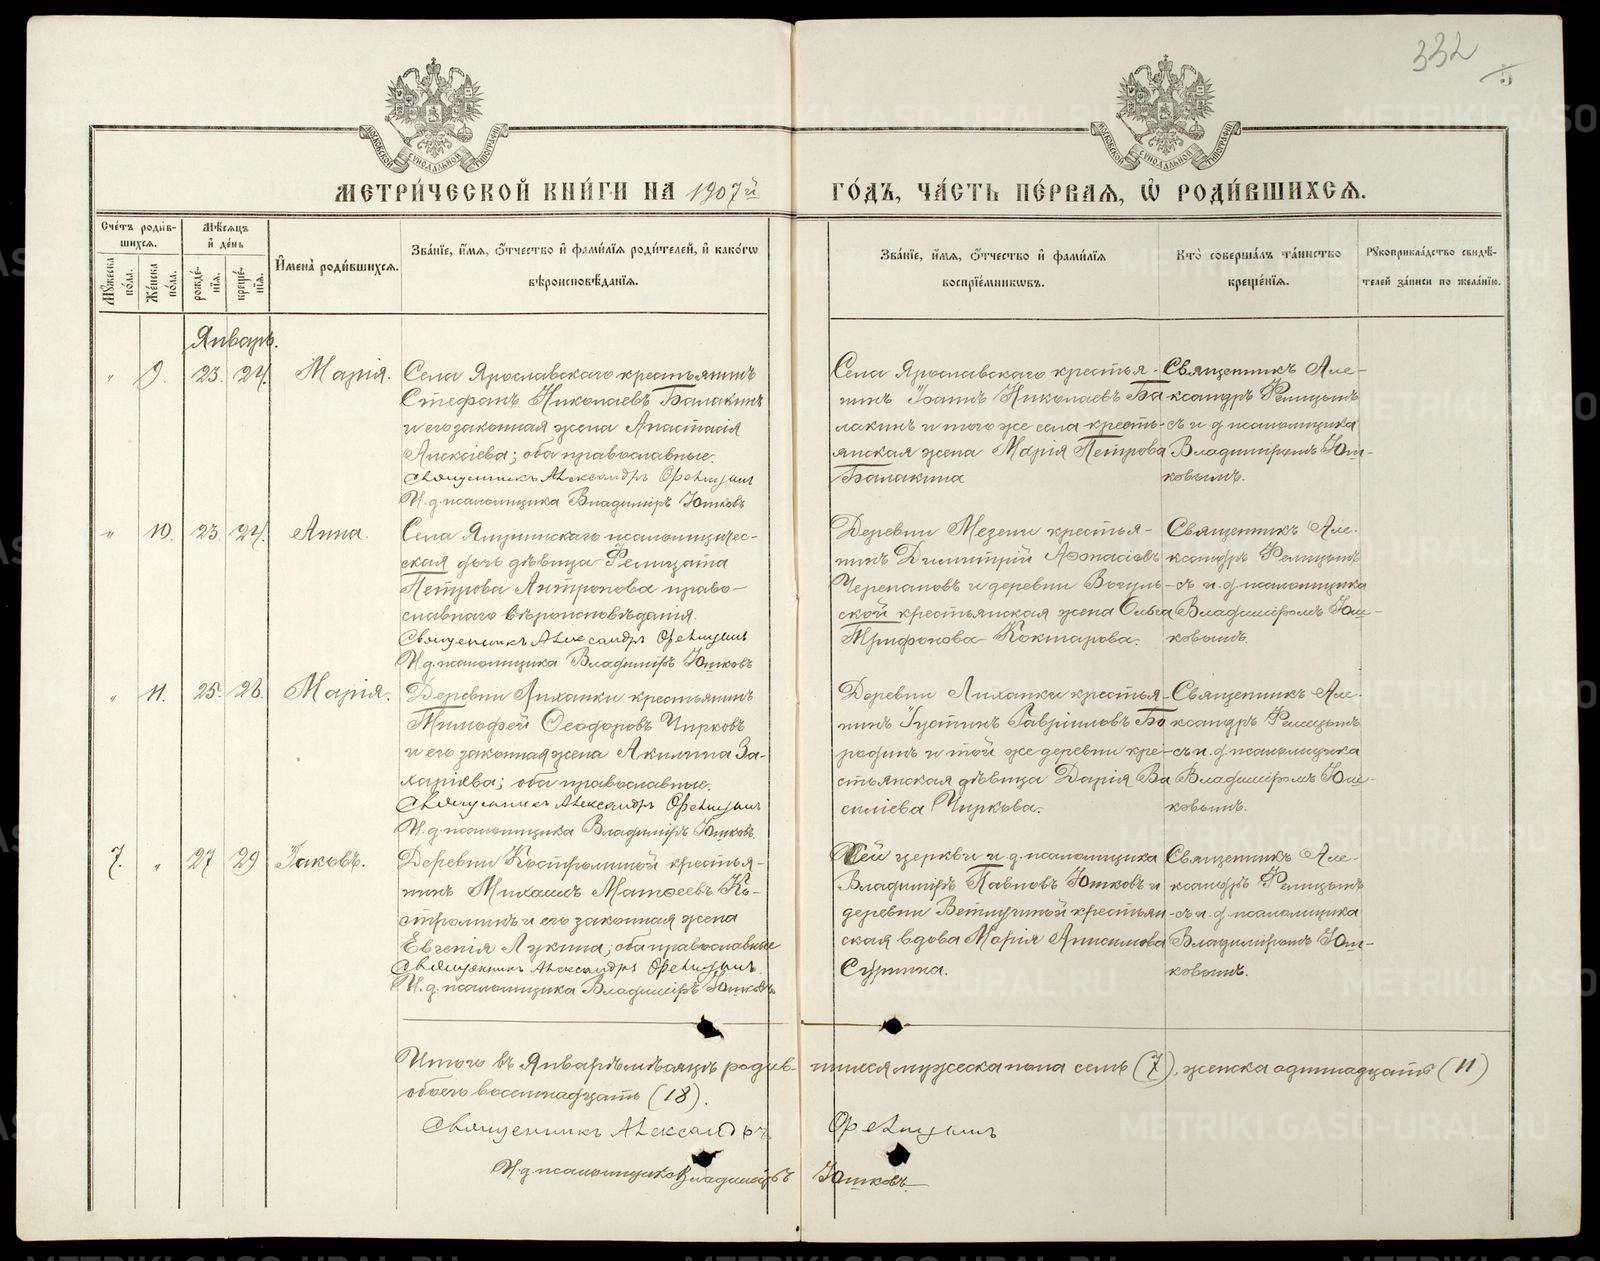 332
5
МОСКОВСКОЙ СѴНОДАЛЬНОЙ ТИПОГРАФІИ
МОСКОВСКОЙ СѴНОДАЛЬНОЙ ТИПОГРАФІИ
МЕТРИ́ЧЕСКОЙ КНИ́ГИ НА 1907й ГО́ДЪ, ЧА́СТЬ ПЕ́РВАЯ, Ѡ҆ РОДИ́ВШИХСЯ.
Сче́тъ роди́в-
шихся.
Мѣ́сяцъ
и҆ де́нь
Мꙋ́жеска по́ла.
Же́нска по́ла.
рожде́-нїя.
креще́-нїя.
И҆мена̀ роди́вшихся.
Зва́нїе, и҆́мя, ѻ҆́тчество и҆ фами́лїя роди́телей, и҆ како́гѡ
вѣроисповѣ́данїя.
Зва́нїе, и҆́мя, ѻ҆́тчество и҆ фами́лїя
воспрїе́мникѡвъ.
Кто̀ соверша́лъ та́инство
креще́нїя.
Рꙋкоприкла́дство свидѣ́-
телей за́писи по жела́нїю.
Январь.
" 9. 23. 24. Марія.
Села Ярославскаго крестьянинъ
Стефанъ Николаевъ Балакинъ
и его законная жена Анастасія
Алексіева; оба православные.
Священникъ Александръ Фелицынъ
И. д. псаломщика Владиміръ Юшковъ
Села Ярославскаго крестья-
нинъ Іоаннъ Николаевъ Ба
лакинъ и того же села кресть-
янская жена Марія Петрова
Балакина
Священникъ Але-
ксандръ Фелицынъ
съ и. д. псаломщика
Владиміромъ Юш-
ковымъ.
" 10. 23. 24. Анна.
псаломщичес-
ская дочь дѣвица Фелицата
Петрова Антропова право-
славнаго вѣроисповѣданія.
Священникъ Александръ Фелицынъ
И. д. псаломщика Владиміръ Юшковъ
Деревни Мезени крестья-
нинъ Димитрій Аѳонасіевъ
Черепановъ и деревни Вогуль-
ской крестьянская жена Ольга
Трифонова Кокшарова.
Священникъ Але-
ксандръ Фелицынъ
съ и. д. псаломщика
Владиміромъ Юш-
ковымъ.
" 11. 25. 28. Марія.
Деревни Лиханки крестьянинъ
Тимофей Ѳеодоровъ Чирковъ
и его законная жена Акилина За-
харіева; оба православные.
Священникъ Александръ Фелицынъ
И. д. псаломщика Владиміръ Юшковъ
Деревни Лиханки крестья-
нинъ Іустинъ Гавріиловъ Бо
родинъ и той же деревни кре-
стьянская дѣвица Дарія Ва
силіева Чиркова.
Священникъ Але-
ксандръ Фелицынъ
съ и. д. псаломщика
Владиміромъ Юш-
ковымъ.
7. " 27 29 Іаковъ.
Деревни Костроминой крестья-
нинъ Михаилъ Матѳеевъ Ко-
строминъ и его законная жена
Евгенія Лукина; оба православные
Священникъ Александръ Фелицынъ.
И. д. псаломщика Владиміръ Юшковъ
Сей церкви и. д. псаломщика
Владиміръ Павловъ Юшковъ и
деревни Ветлугиной крестьян-
ская вдова Марія Анисимова
Сурнина.
Священникъ Але-
ксандръ Фелицынъ
съ и. д. псаломщика
Владиміромъ Юш-
ковымъ.
Итого въ Январѣ мѣсяцѣ родив-шихся мужеска пола семь (7), женска одиннадцать (11)
обоего восемнадцать (18).
Священникъ Александръ Фелицынъ
И. д. псаломщика Владиміръ Юшковъ
METRIKI.GASO-URAL.RU